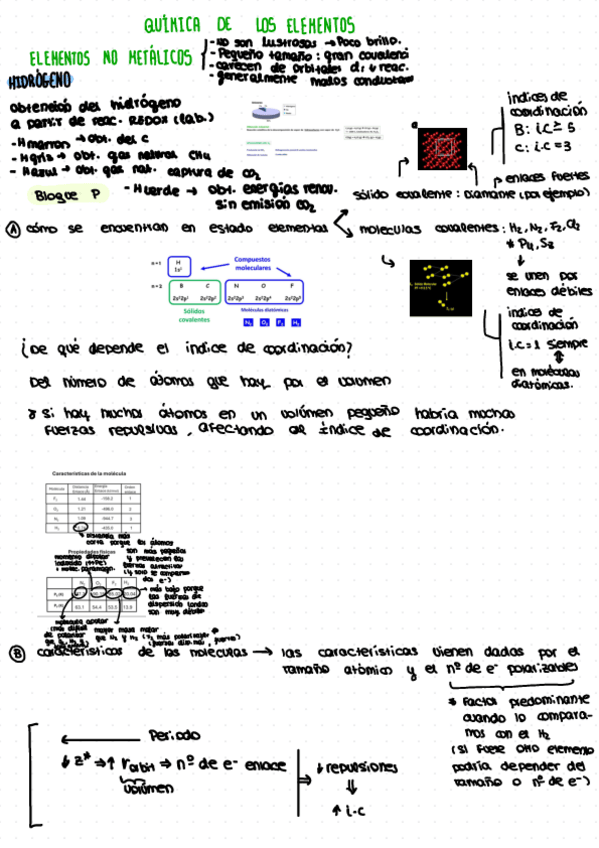 QUÍMICA DE LOS ELEMENTOS
ELEMENTOS NO METÁLICOS
- No son lustrosos → Poco brillo.
- Pequeño tamaño: gran covalenci
- carecen de orbitales d, ↓ reac.
- generalmente malos conductores
HIDRÓGENO
obtención del hidrógeno
a partir de reac. REDOX (lab.)
- H marron → obt. del c
- H gris → obt. gas natural CH4
- H azul → obt. gas nat. captura de CO2
- H verde → obt. energías renov.
sin emisión CO2
Bloque P
índices de
coordinación
B: i.c ≥ 5
C: i.c = 3
enlaces fuertes
sólido covalente: Diamante (por ejemplo)
Ⓐ cómo se encuentran en estado elemental
moleculas covalentes: H2, N2, F2, Cl2
* P4, S8
↓
se unen por
enlaces débiles
índices de
coordinación
i.c = 1 siempre
en moléculas
diatómicas.
n = 1
H
1s1
Compuestos
moleculares
n = 2
B C N O F
2s22p1 2s22p2 2s22p3 2s22p4 2s22p5
Sólidos
covalentes
Moléculas diatómicas
N2 O2 F2 H2
¿De qué depende el índice de coordinación?
Del número de átomos que hay por el volumen
si hay muchos átomos en un volúmen pequeño habría muchas
fuerzas repulsivas, afectando al índice de coordinación.
Características de la molécula
Molécula Distancia Energía Orden
F2 1
O2 2
N2 3
H2 1
distancia más
corta porque los átomos
son más pequeños
y prevalecen las
fuerzas atractivas
Propiedades físicas
N2 O2 F2 H2
63,1 54,4 53,5 13,8
más bajo porque
las fuerzas de
dispersión London
son muy débiles
Ⓑ características de las moleculas → las características vienen dadas por el
tamaño atómico y el nº de e- polarizables
* Factor predominante
cuando lo compara-
mos con el H2
(si fuese otro elemento
podría depender del
tamaño o nº de e-)
Periodo
↓ z* ⇒ ↑ r orbit ⇒ nº de e- enlace
volúmen
⇒ ↓ repulsiones
⇓
↑ i-c